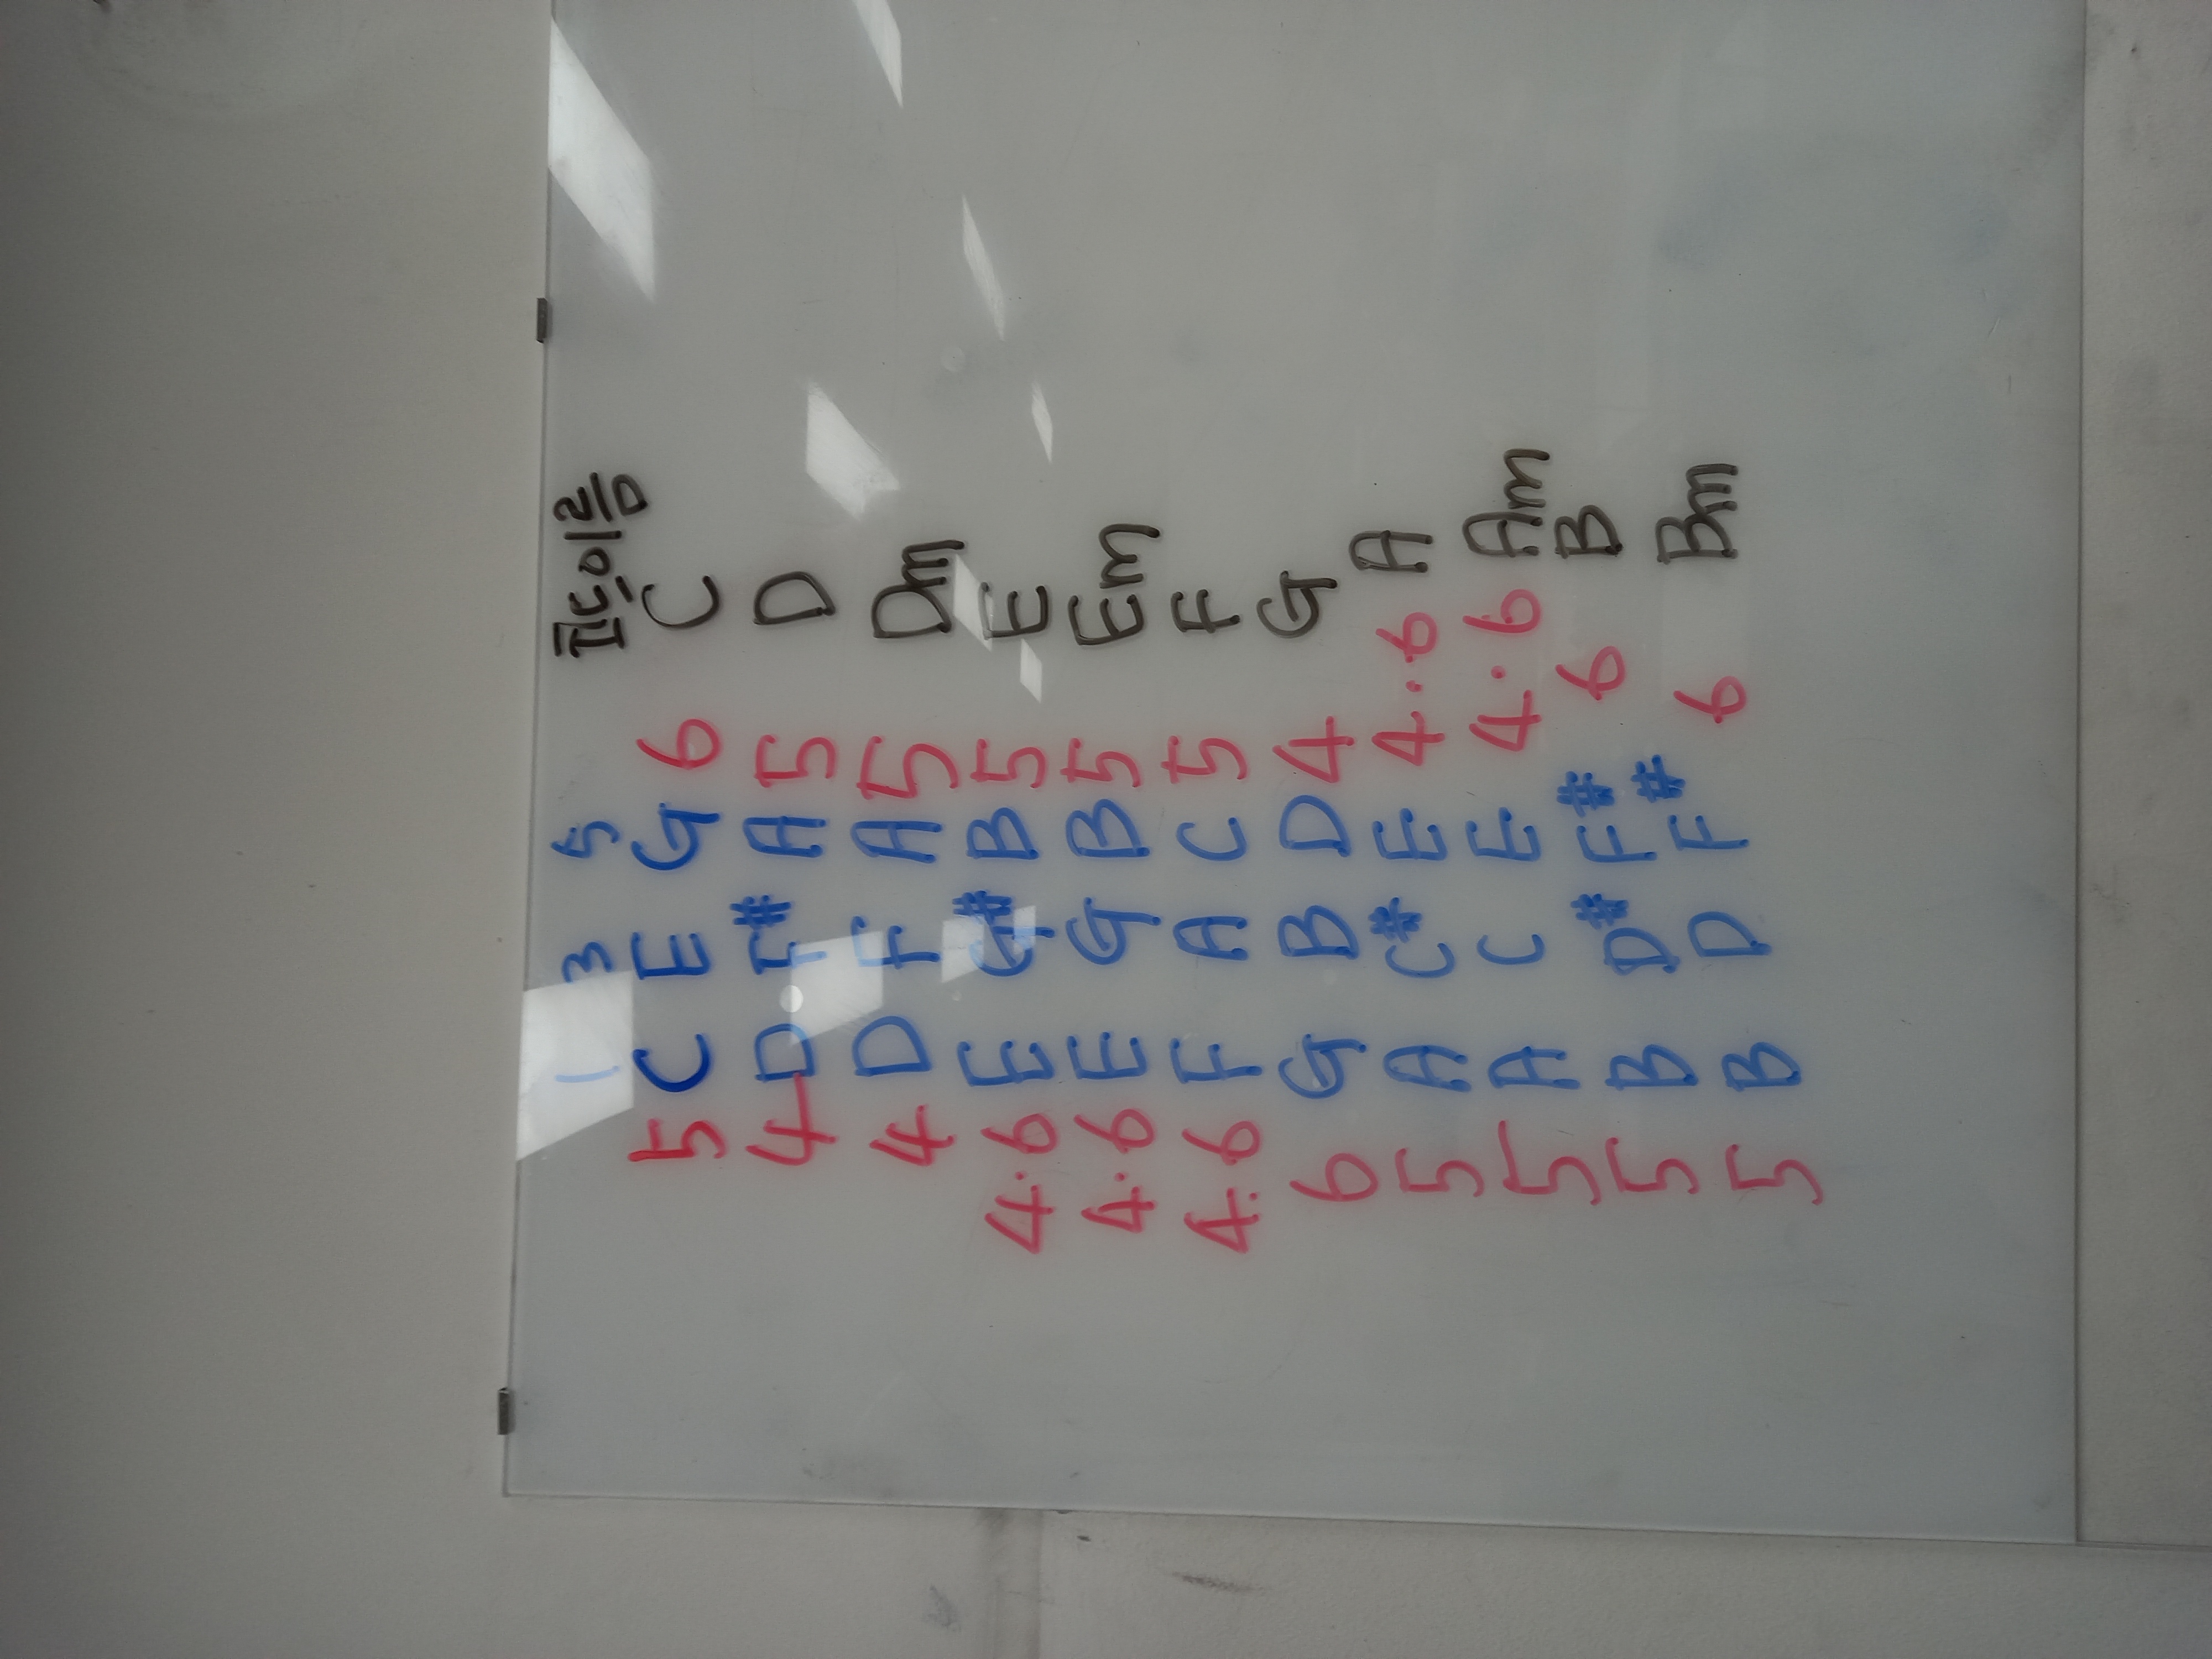 1 3 5 코드이름
5 C E G 6 C
4 D F# A 5 D
4 D F A 5 Dm
4.6 E G# B 5 E
4.6 E G B 5 Em
4.6 F A C 5 F
6 G B D 4 G
5 A C# E 4.6 A
5 A C E 4.6 Am
5 B D# F# 6 B
5 B D F# 6 Bm